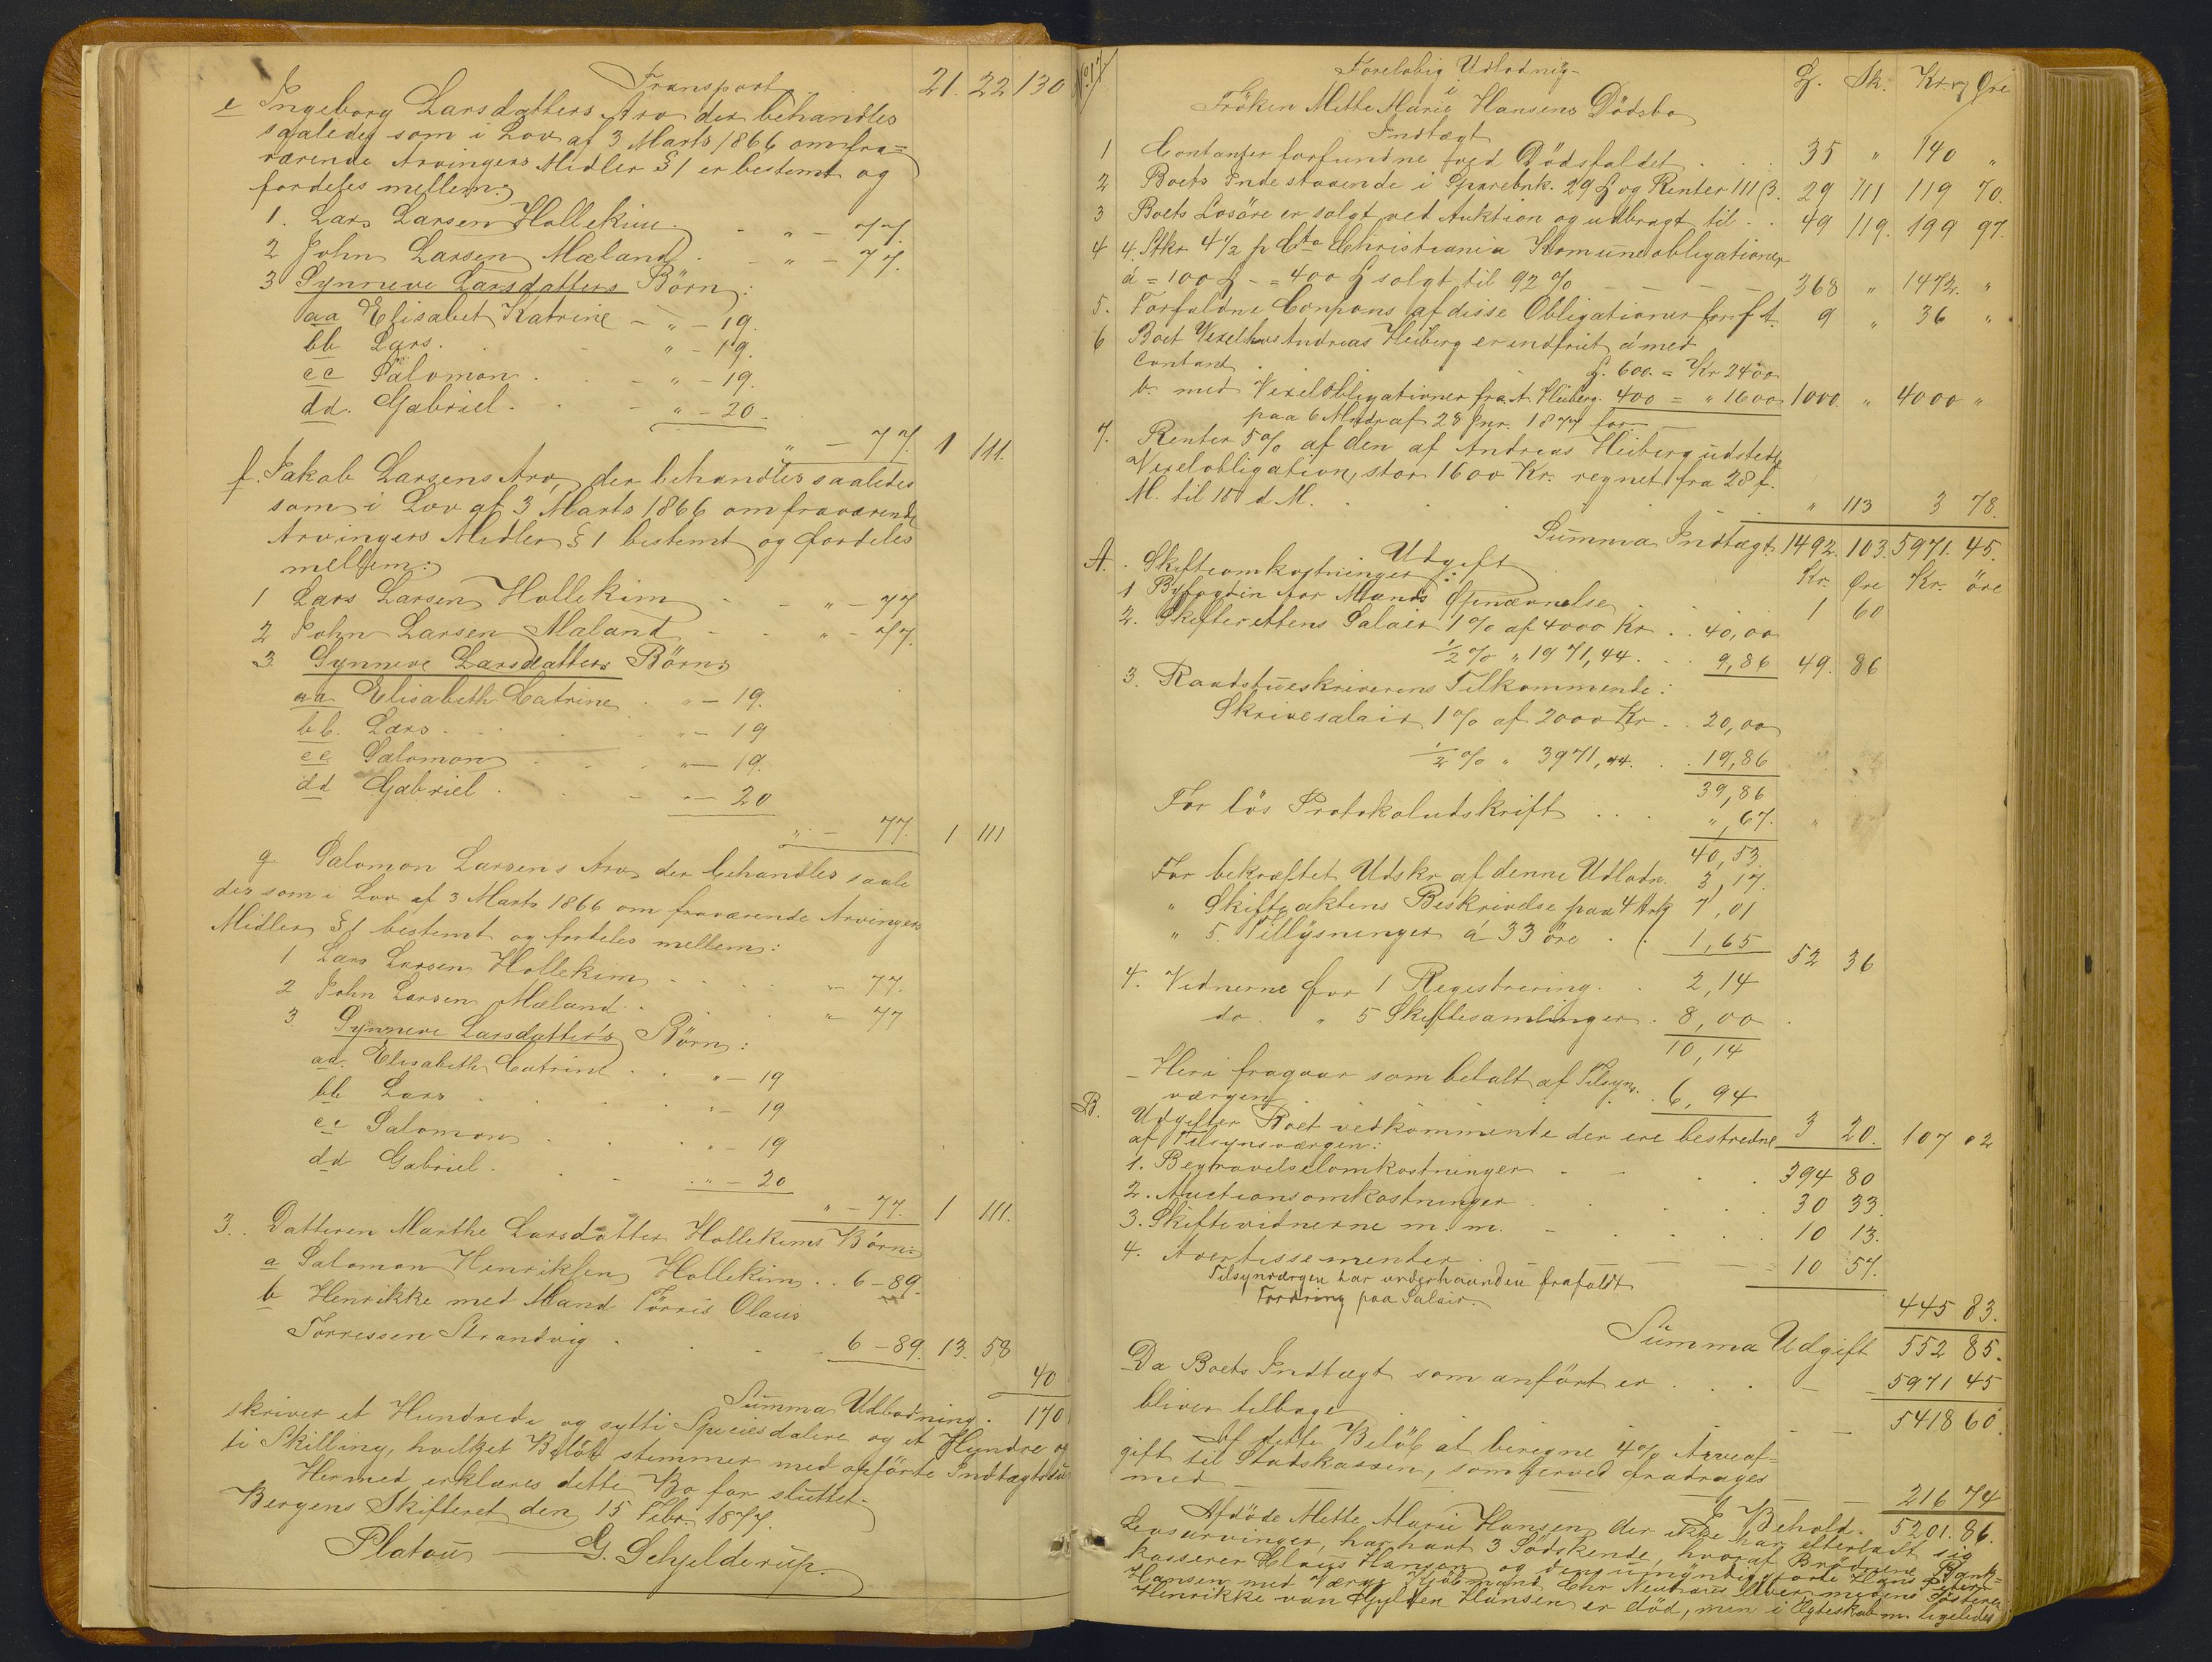 Transport 21. 22 130
e Ingeborg Larsdatters Arv der behandles
saaledes som i Lov af 3 Marts 1866 om fra=
værende Arvingers Midler § 1 er bestemt og
fordeles mellem:
1. Lars Larsen Hollekim - " - 77.
2 John Larsen Mæland - " - 77.
3 Synneve Larsdatters Börn:
aa Elisabet Katrine - " - 19.
bb Lars. " - 19.
cc Salomon . - " - 19.
dd. Gabriel . - " - 20.
" - 77. 1 111.
f. Jakob Larsens Arv, der behandles saaledes
som i Lov af 3 Marts 1866 om fraværende
Arvingers Midler § 1 bestemt og fordeles
mellem:
1 Lars Larsen Hollekim - - " - 77
2 John Larsen Mæland - - " - 77.
3 Synneve Larsdatters Börn
aa Elisabeth Catrine . " - 19.
bb. Lars . " - 19
cc Salomon " - 19.
dd Gabriel . - " - 20
" - 77. 1 111
g. Salomon Larsens Arv der behandles saale
des som i Lov af 3 Marts 1866 om fraværende Arvingers
Midler § 1 bestemt og fordeles mellem:
1 Lars Larsen Hollekim - - " 77.
2 John Larsen Mæland . " 77
3 Synneve Larsdatter's Börn:
aa. Elisabeth Catrine . " - 19
bb Lars . " - 19
cc Salomon . " - 19
dd Gabriel . - " - 20
" - 77. 1 111.
3. Datteren Marthe Larsdatter Hollekims Börn:
a Salomon Henriksen Hollekim . . 6 - 89.
b Henrikke med Mand Törris Olaus
Torressen Strandvig . 6 - 89. 13. 58
40
Summa Udlodning. 170
skriver et Hundrede og sytti Speciesdalere og et Hundre og
ti Skilling, hvilket Belöb stemmer med anförte Indtægtssum
Hermed erklæres dette Bo for sluttet.
Bergens Skifteret den 15 Febr. 1877.
Platou — G. Schjelderup.
No 17
Forelobig Udlodnig
i
Fröken Mette Marie Hansens Dödsbo
Indtægt
Sk. Kr. og Öre
1 Contanter forfundne ved Dödsfaldet . . . 35 " 140 "
2 Boets Indestaaende i Sparebnk. 29 og Renter 111 ß. 29 111 119 70.
3 Boets Losöre er solgt ved Auktion og udbragt til . . 49 119. 199 97.
4 4. Stkr 4 1/2 p Cto Christiania Komuneobligationer
á = 100 - = 400 solgt til 92 % - - - 368 " 1472. "
5. Forfaldne Coupons af disse Obligationer for f. A. 9 " 36 "
6 Boet Vexel hos Andreas Heiberg er indfriet á med
Contant . 600. = Kr 2400
b. med Vexelobligationer fra A. Heiberg. 400 = " 1600 1000. " 4000 "
paa 6 Mndr af 28 Jnr. 1877 for
7. Renter 5 % af den af Andreas Heiberg udstedte
Vexelobligation, stor 1600 Kr. regnet fra 28 f.
M. til 15 d. M. " 113 3 78.
Summa Indtægt 1492. 103. 5971. 45.
Udgift Kr. Öre Kr. öre
A. Skifteomkostninger:
1 Byfogdin for Mands Opnævnelse . . . 1 60
2. Skifterettens Salair 1 % af 4000 Kr . . 40,00
1/2 % " 1971,44. . . 9,86 49. 86
3. Raadstueskriverens Tilkommende:
Skrivesalair 1 % af 2000 Kr . . 20,00
1/2 % " 3971,44. . . 19,86
39,86
For lös Protokoludskrift . . . ",67.
40,53.
For bekræftet Udskr. af denne Udlodn. 3,17.
" Skifteaktens Beskrivelse paa 4 Ark 7,01
" 5. Tillysninger á 33 öre . . 1,65 52 36
4. Vidnerne for 1 Registrering. . 2,14
do. " 5 Skiftesamlinger . 8,00
10,14
- Heri fragaar som betalt af Tilsyns-
værgen . . 6,94 3 20. 107 02
B. Udgifter Boet vedkommende der ere bestredne
af Tilsynsværgen:
1. Begravelselomkostninger - - . 394 80
2. Auctionsomkostninger . . . 30 33.
3. Skiftevidnerne m. m. - . . 10 13.
4. Avertissementer . - - - 10 57.
Tilsynværgen har underhaanden frafaldt
Fordring paa Salair. 445 83.
Summa Udgift 552 85.
Da Boets Indtægt som anfört er . . . - 5971 45
bliver tilbage - - 5418 60.
Af dette Belöb at beregne 4 % Arveaf=
gift til Statskassen, som herved fradrages
med - - - - 216 74
I Behold. 5201. 86.
Afdöde Mette Marie Hansen, der ikke har efterladt sig
Livsarvinger, har havt 3 Södskende, hvoraf Brödrene Bank-
kasserer Claus Hansen og den umyndiggjorte Hans Peter
Hansen med Værge Kjöbmand Chr Neuhaus lever medens Sösteren
Henrikke van der Hansen er död, men i Ægteskab m. ligeledes